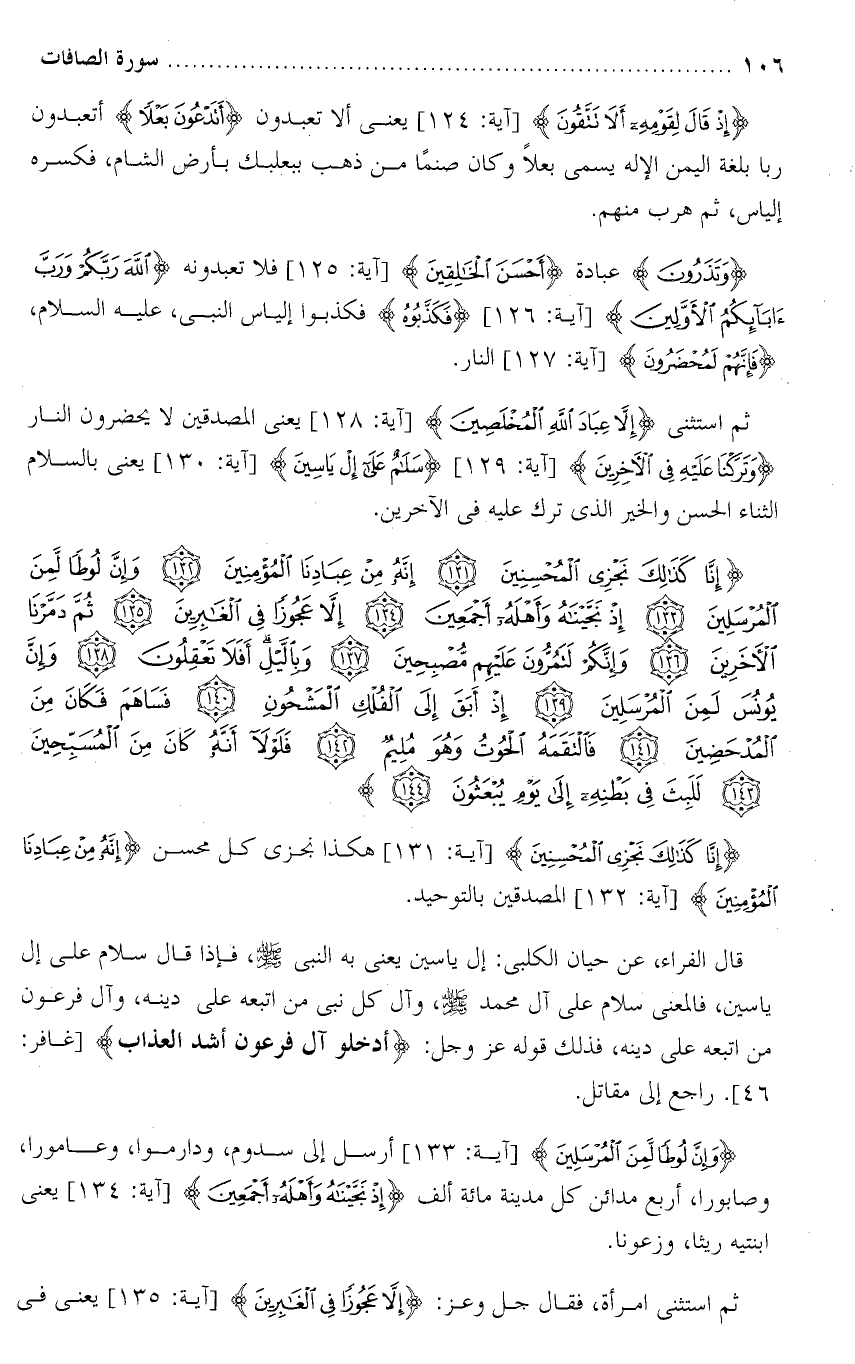 ١٠٦ ........................................................................ سورة الصافات
﴿إِذْ قَالَ لِقَوْمِهِۦٓ أَلَا تَتَّقُونَ﴾ [آية: ١٢٤] يعنى ألا تعبدون ﴿أَتَدْعُونَ بَعْلًا﴾ أتعبدون
ربا بلغة اليمن الإله يسمى بعلاً وكان صنمًا من ذهب ببعلبك بأرض الشام، فكسره
إلياس، ثم هرب منهم.
﴿وَتَذَرُونَ﴾ عبادة ﴿أَحْسَنَ الْخَالِقِينَ﴾ [آية: ١٢٥] فلا تعبدونه ﴿اللَّهَ رَبَّكُمْ وَرَبَّ
ءَابَآئِكُمُ الْأَوَّلِينَ﴾ [آية: ١٢٦] ﴿فَكَذَّبُوهُ﴾ فكذبوا إلياس النبى، عليه السلام،
﴿فَإِنَّهُمْ لَمُحْضَرُونَ﴾ [آية: ١٢٧] النار.
ثم استثنى ﴿إِلَّا عِبَادَ اللَّهِ الْمُخْلَصِينَ﴾ [آية: ١٢٨] يعنى المصدقين لا يحضرون النار
﴿وَتَرَكْنَا عَلَيْهِ فِي الْآخِرِينَ﴾ [آية: ١٢٩] ﴿سَلَٰمٌ عَلَىٰٓ إِلْ يَاسِينَ﴾ [آية: ١٣٠] يعنى بالسلام
الثناء الحسن والخير الذى ترك عليه فى الآخرين.
﴿إِنَّا كَذَٰلِكَ نَجْزِى الْمُحْسِنِينَ ١٣١ إِنَّهُۥ مِنْ عِبَادِنَا الْمُؤْمِنِينَ ١٣٢ وَإِنَّ لُوطًا لَّمِنَ
الْمُرْسَلِينَ ١٣٣ إِذْ نَجَّيْنَٰهُ وَأَهْلَهُۥٓ أَجْمَعِينَ ١٣٤ إِلَّا عَجُوزًا فِي الْغَٰبِرِينَ ١٣٥ ثُمَّ دَمَّرْنَا
الْآخَرِينَ ١٣٦ وَإِنَّكُمْ لَتَمُرُّونَ عَلَيْهِم مُّصْبِحِينَ ١٣٧ وَبِالَّيْلِ أَفَلَا تَعْقِلُونَ ١٣٨ وَإِنَّ
يُونُسَ لَمِنَ الْمُرْسَلِينَ ١٣٩ إِذْ أَبَقَ إِلَى الْفُلْكِ الْمَشْحُونِ ١٤٠ فَسَاهَمَ فَكَانَ مِنَ
الْمُدْحَضِينَ ١٤١ فَالْتَقَمَهُ الْحُوتُ وَهُوَ مُلِيمٌ ١٤٢ فَلَوْلَآ أَنَّهُۥ كَانَ مِنَ الْمُسَبِّحِينَ
١٤٣ لَلَبِثَ فِي بَطْنِهِۦٓ إِلَىٰ يَوْمِ يُبْعَثُونَ ١٤٤﴾
﴿إِنَّا كَذَٰلِكَ نَجْزِى الْمُحْسِنِينَ﴾ [آية: ١٣١] هكذا نجزى كل محسن ﴿إِنَّهُۥ مِنْ عِبَادِنَا
الْمُؤْمِنِينَ﴾ [آية: ١٣٢] المصدقين بالتوحيد.
قال الفراء، عن حيان الكلبى: إل ياسين يعنى به النبى ﷺ، فإذا قال سلام على إل
ياسين، فالمعنى سلام على آل محمد ﷺ، وآل كل نبى من اتبعه على دينه، وآل فرعون
من اتبعه على دينه، فذلك قوله عز وجل: ﴿أدخلو آل فرعون أشد العذاب﴾ [غافر:
٤٦]. راجع إلى مقاتل.
﴿وَإِنَّ لُوطًا لَّمِنَ الْمُرْسَلِينَ﴾ [آية: ١٣٣] أرسل إلى سدوم، ودارموا، وعامورا،
وصابورا، أربع مدائن كل مدينة مائة ألف ﴿إِذْ نَجَّيْنَٰهُ وَأَهْلَهُۥٓ أَجْمَعِينَ﴾ [آية: ١٣٤] يعنى
ابنتيه ريثا، وزعونا.
ثم استثنى امرأة، فقال جل وعز: ﴿إِلَّا عَجُوزًا فِي الْغَٰبِرِينَ﴾ [آية: ١٣٥] يعنى فى